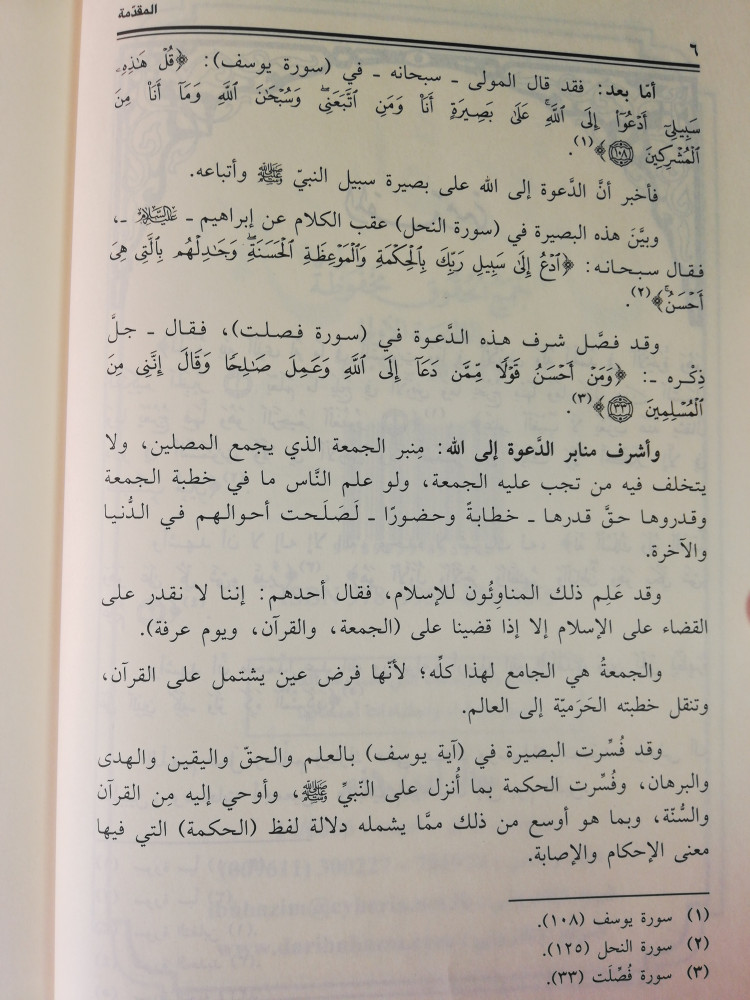 المقدّمة
٦
أمّا بعد: فقد قال المولى ـ سبحانه ـ في (سورة يوسف): ﴿قُلْ هَٰذِهِۦ
سَبِيلِيٓ أَدْعُوٓا۟ إِلَى ٱللَّهِ ۚ عَلَىٰ بَصِيرَةٍ أَنَا۠ وَمَنِ ٱتَّبَعَنِى ۖ وَسُبْحَٰنَ ٱللَّهِ وَمَآ أَنَا۠ مِنَ
ٱلْمُشْرِكِينَ ١٠٨﴾(١).
فأخبر أنَّ الدَّعوة إلى الله على بصيرة سبيل النبيّ ﷺ وأتباعه.
وبيَّنَ هذه البصيرة في (سورة النحل) عقب الكلام عن إبراهيم ـ عليه السلام ـ،
فقال سبحانه: ﴿ٱدْعُ إِلَىٰ سَبِيلِ رَبِّكَ بِٱلْحِكْمَةِ وَٱلْمَوْعِظَةِ ٱلْحَسَنَةِ ۖ وَجَٰدِلْهُم بِٱلَّتِى هِىَ
أَحْسَنُ ۚ﴾(٢).
وقد فصَّل شرف هذه الدَّعوة في (سورة فصلت)، فقال ـ جلَّ
ذِكْره ـ: ﴿وَمَنْ أَحْسَنُ قَوْلًا مِّمَّن دَعَآ إِلَى ٱللَّهِ وَعَمِلَ صَٰلِحًا وَقَالَ إِنَّنِى مِنَ
ٱلْمُسْلِمِينَ ٣٣﴾(٣).
وأشرف منابر الدَّعوة إلى الله: مِنبر الجمعة الذي يجمع المصلين، ولا
يتخلف فيه من تجب عليه الجمعة، ولو علم النَّاس ما في خطبة الجمعة
وقدروها حقَّ قدرها ـ خطابةً وحضورًا ـ لَصَلَحت أحوالهم في الدُّنيا
والآخرة.
وقد عَلِم ذلك المناوِئُون للإسلام، فقال أحدهم: إننا لا نقدر على
القضاء على الإسلام إلا إذا قضينا على (الجمعة، والقرآن، ويوم عرفة).
والجمعةُ هي الجامع لهذا كلِّه؛ لأنّها فرض عين يشتمل على القرآن،
وتنقل خطبته الحَرَميّة إلى العالم.
وقد فُسِّرت البصيرة في (آية يوسف) بالعلم والحقّ واليقين والهدى
والبرهان، وفُسِّرت الحكمة بما أُنزل على النّبيِّ ﷺ، وأوحي إليه مِن القرآن
والسُّنّة، وبما هو أوسع من ذلك ممَّا يشمله دلالة لفظ (الحكمة) التي فيها
معنى الإحكام والإصابة.
(١) سورة يوسف (١٠٨).
(٢) سورة النحل (١٢٥).
(٣) سورة فُصِّلَت (٣٣).